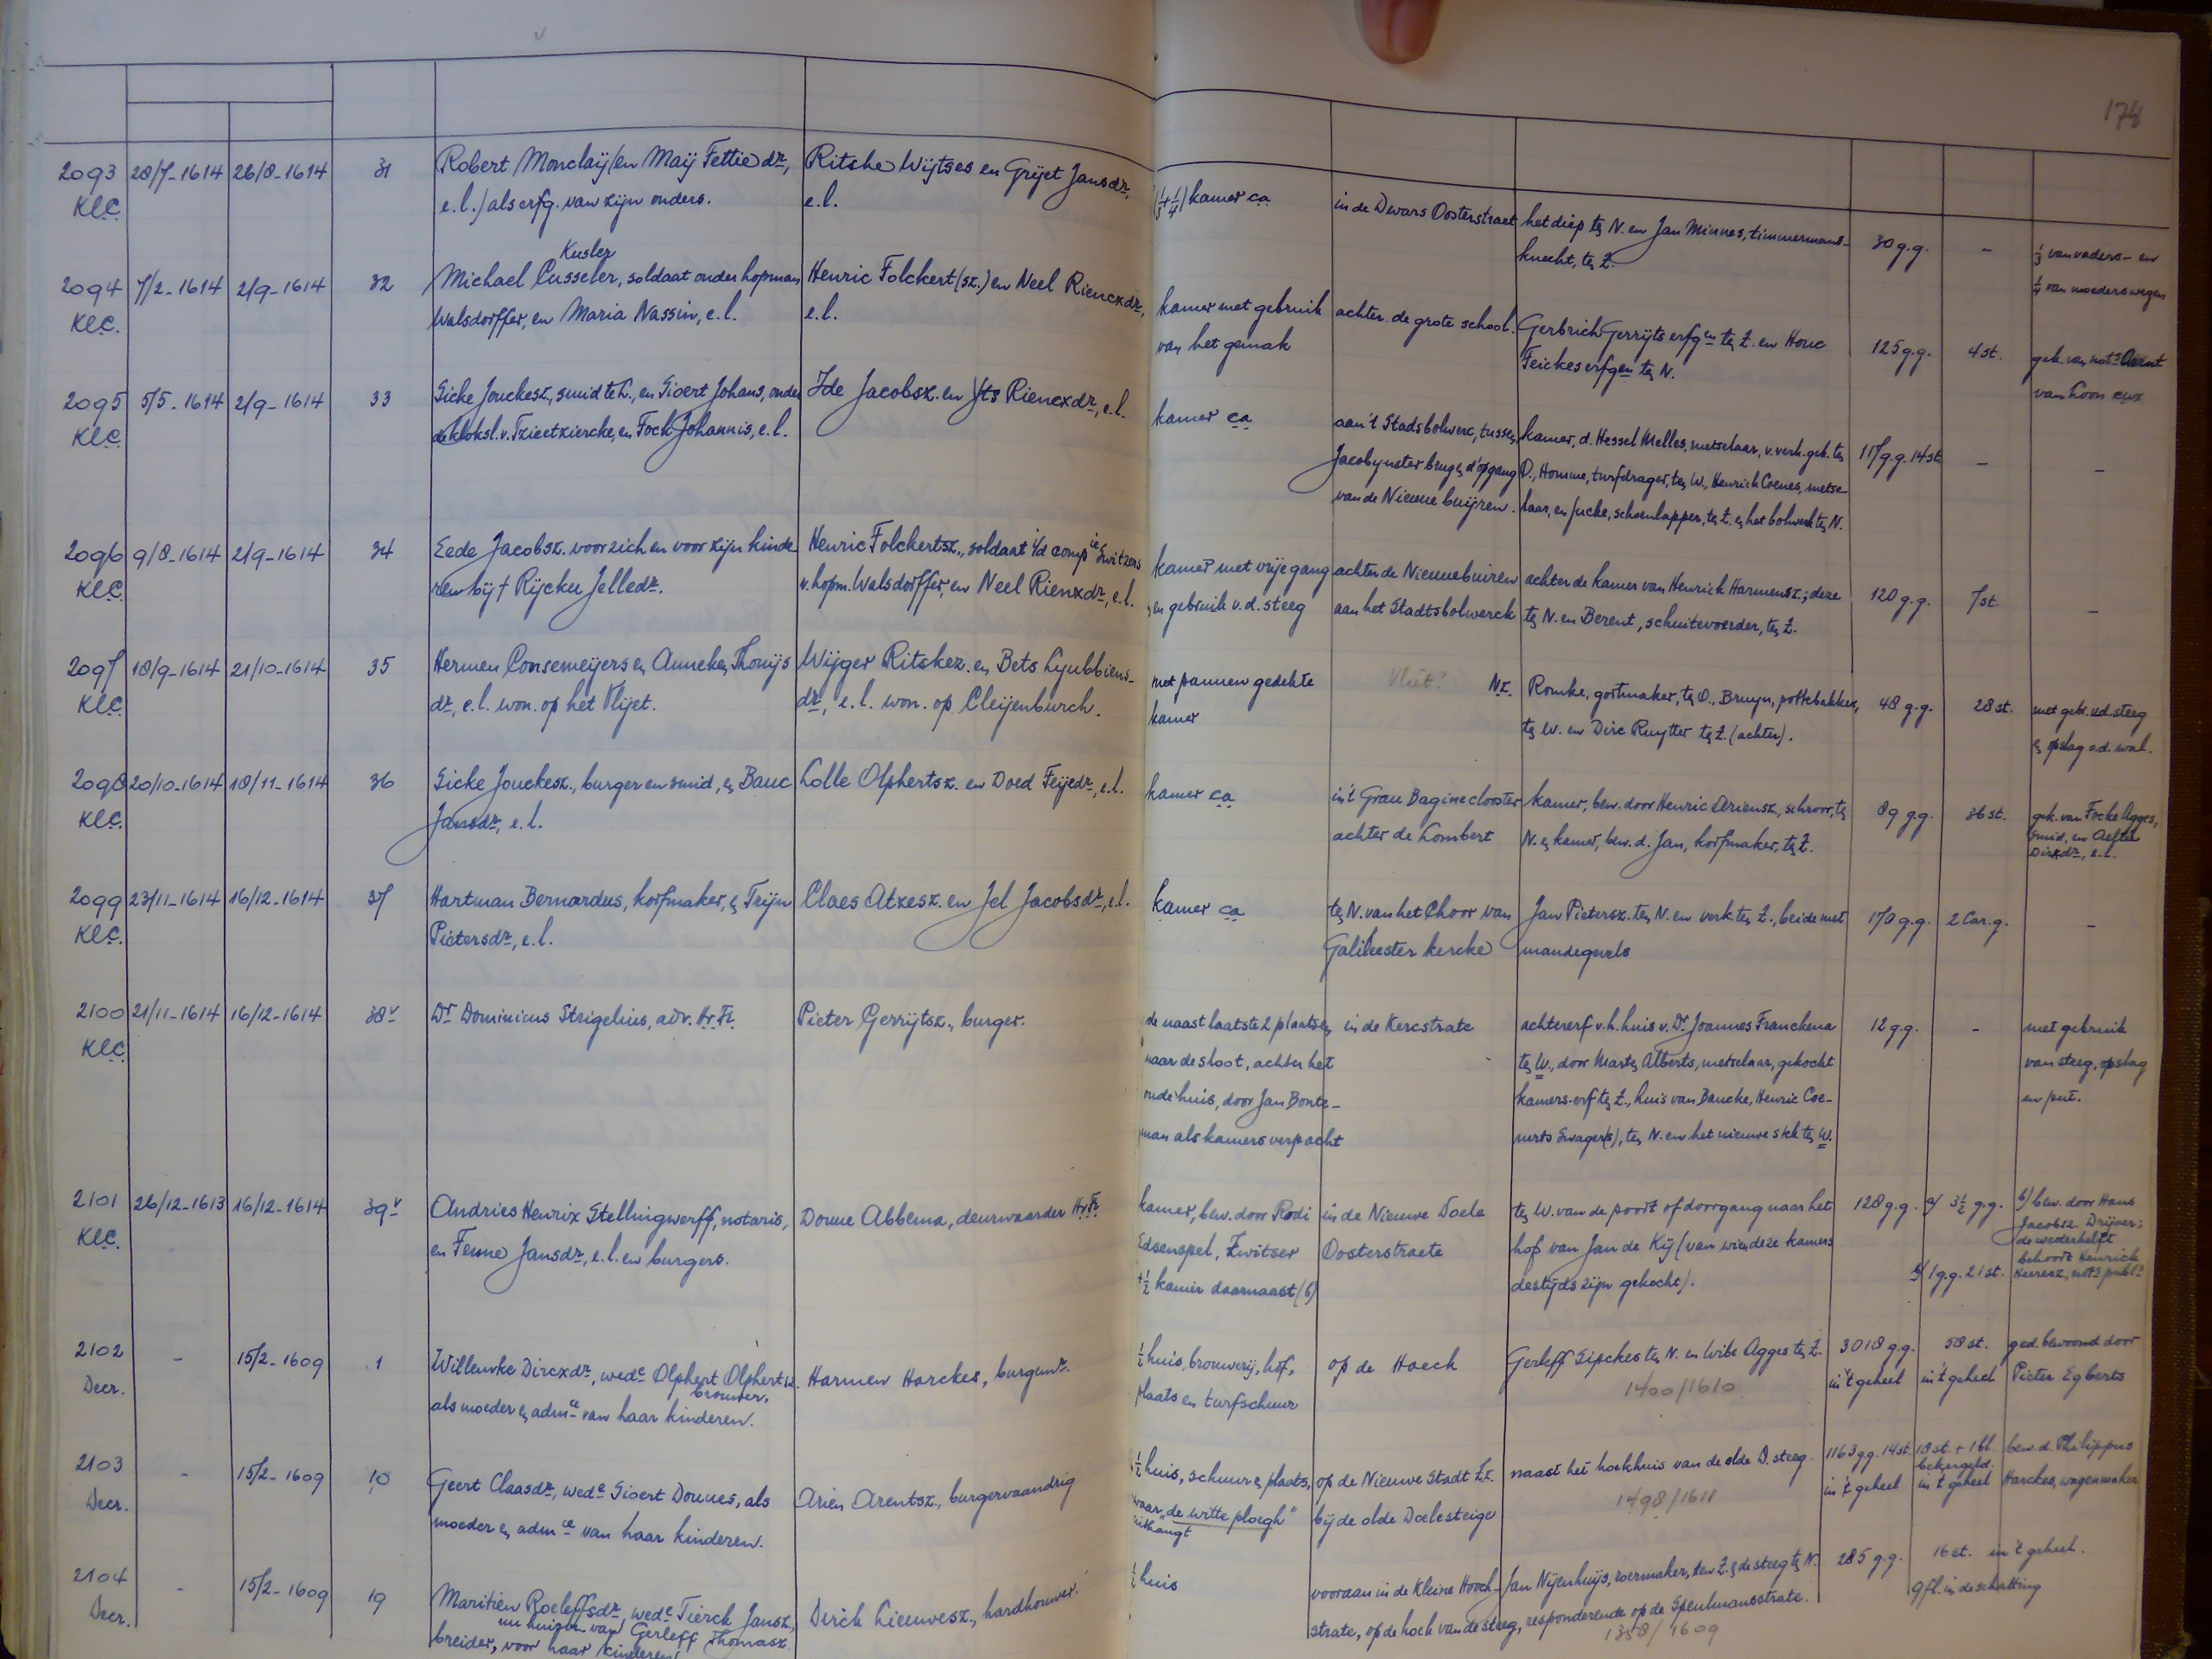 174
2093 28/7-1614 26/8-1614 31 Robert Monclaij (en Maij Fettie dr, Ritske Wijtses en Grijet Jansdr, (1/3+1/4) kamer ca in de Dwars Oosterstraet het diep ten N. en Jan Minnes, timmermans- 30 g.g. - 1/3 van vaders- en
KLC. e.l.) als erfg. van zijn ouders. e.l. knecht, ten Z. 1/4 van moederswegen
Kusler
2094 7/2-1614 2/9-1614 32 Michael Cusseler, soldaat onder hopman Henric Folckert(sz.) en Neel Riencxdr, kamer met gebruik achter de grote school. Gerbrich Gerrijts erfgen ten Z. en Houc 125 g.g. 4 st. gek. van nots Arent
KLC. Walsdorffer, en Maria Nassin, e.l. e.l. van het gemak Feickes erfgen ten N. van Loon cux
2095 5/5-1614 2/9-1614 33 Sicke Jouckesz., smid te L., en Sioert Johans, onder Ide Jacobsz. en Jts Riencxdr, e.l. kamer ca aan 't Stadsbolwerc, tussen kamer, d. Hessel Melles, metselaar, v. verk. geb. ten 117 g.g. 14 st. - -
KLC. de kloksl. v. Tzieetziercke, en Fock Johannis, e.l. Jacobijnster brug en d'opgang O., Homme, turfdrager, ten W., Henrich Coenes, metse-
van de Nieuwe buijren. laar, en Jucke, schoenlapper, ten Z. en het bolwerk ten N.
2096 9/8-1614 2/9-1614 34 Eede Jacobsz. voor zich en voor zijn kinde- Henric Folckertsz., soldaat i/d compie Switzers kamer met vrije gang achter de Nieuwebuiren achter de kamer van Henrick Harmensz.; deze 120 g.g. 7 st. -
KLC. ren bij † Rijcku Jelledr. v. hopm. Walsdorffer, en Neel Rienxdr, e.l. en gebruik v.d. steeg aan het Stadtsbolwerck ten N. en Berent, schuitevoerder, ten Z.
2097 18/9-1614 21/10-1614 35 Hermen Consemeijers en Anneken Thonijs Wijger Ritskez. en Bets Lyubbiens- met pannen gedekte Vliet? NZ. Romke, gortmaker, ten O., Bruyn, pottebakker, 48 g.g. 28 st. met gebr. v.d. steeg
KLC. dr, e.l. won. op het Vlijet. dr, e.l. won. op Cleijenburch. kamer ten W. en Dirc Ruytter ten Z. (achter). en opslag a.d. wal.
2098 20/10-1614 18/11-1614 36 Sicke Jouckesz., burger en smid, en Bauc Lolle Olphertsz. en Doed Feijedr, e.l. kamer ca in 't Grau Bagineclooster kamer, bew. door Henric Ariensz., schroor, ten 89 g.g. 36 st. gek. van Focke Agges,
KLC. Jansdr, e.l. achter de Lombert N. en kamer, bew. d. Jan, korfmaker, ten Z. smid, en Aeltie
Dirxdr, e.l.
2099 23/11-1614 16/12-1614 37 Hartman Bernardus, korfmaker, en Trijn Claes Atzesz. en Jel Jacobsdr, e.l. kamer ca ten N. van het Choor van Jan Pietersz. ten N. en verk. ten Z., beide met 170 g.g. 2 Car. g. -
KLC. Pietersdr, e.l. Galileester kercke mandegevels
2100 21/11-1614 16/12-1614 38v Dr Dominicus Strigelius, adv. Hr. Fr. Pieter Gerrijtsz., burger. de naast laatste 2 plaatsen in de Kercstrate achtererf v.h. huis v. Dr. Joannes Franckena 12 g.g. - met gebruik
KLC. naar de sloot, achter het ten W., door Marten Alberts, metselaar, gekocht van steeg, opslag
oude huis, door Jan Bonte- kamers-erf ten Z., huis van Baucke, Henric Coe- en put.
man als kamers verpacht nerts swager(s), ten N. en het nieuwe stek ten W.
2101 26/12-1613 16/12-1614 39v Andries Henrix Stellingwerff, notaris, Douue Abbema, deurwaarder Hr. Fr. kamer, bew. door Rodi in de Nieuwe Doele ten W. van de poort of doorgang naar het 128 g.g. a/ 3 1/2 g.g. b/ bew. door Hans
KLC. en Fenne Jansdr, e.l. en burgers. Edsenspel, Zwitser Oosterstraete hof van Jan de Kij (van wien deze kamers Jacobsz. Drijver;
+ 1/2 kamer daarnaast (b) destijds zijn gekocht). b/ 1 g.g. 21 st. de wederhelft
behoort Henrick
Heeresz., nots publs
2102 - 15/2-1609 1 Willemke Dircxdr, wede Olphert Olphertsz. Harmen Harckes, burgemr. 1/2 huis, brouwerij, hof, op de Hoeck Gerleff Sipckes ten N. en Wibe Agges ten Z. 3018 g.g. 58 st. ged. bewoond door
Decr. brouwer, als moeder en admce van haar kinderen. plaats en turfschuur 1400/1610 in 't geheel in 't geheel Pieter Egberts
2103 - 15/2-1609 10 Geert Claasdr, wede Sioert Douues, als Arien Arentsz., burgervaandrig 1/2 huis, schuur en plaats, op de Nieuwe Stadt ZZ. naast het hoekhuis van de olde D. steeg. 1163 g.g. 14 st. 18 st. + 1 bl. bew. d. Philippus
Decr. moeder en admce van haar kinderen. waar „de witte ploegh" uithangt bij de olde Doelesteige 1498/1611 in 't geheel bekergeld in 't geheel Harckes, wagenmaker
2104 - 15/2-1609 19 Maritien Roeleffsdr, wede Tierck Jansz., Dirck Lieuwesz., hardhouwer. 1/2 huis vooraan in de kleine Hooch- Jan Nijenhuijs, roermaker, ten Z. en de steeg ten N. 285 g.g. 16 st. in 't geheel.
Decr. nu huisvr. van Gerleff Thomasz. strate, op de hoek van de steeg, responderende op de Speulmansstrate. 9 fl. in de schatting
breider, voor haar kinderen. 1358/1609